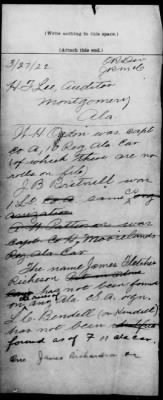 (Write nothing in this space.)
(Attach this end.)
3/27/22
H. T. Lee, Auditor
Montgomery
Ala
W H Ogton was capt
co A, 10 Reg Ala Cav
(of which there are no
rolls on file)
J. B. Bretnell was
1 Lt co same
organization
was
capt co Moreland's
Reg Ala Cav
The name James Fletcher
Richeson
has not been found
on any Ala C.S.A. orgn.
L. C. Bendell (or Kendell)
has not been
found as of 7 Ala Cav.
One James Richardson